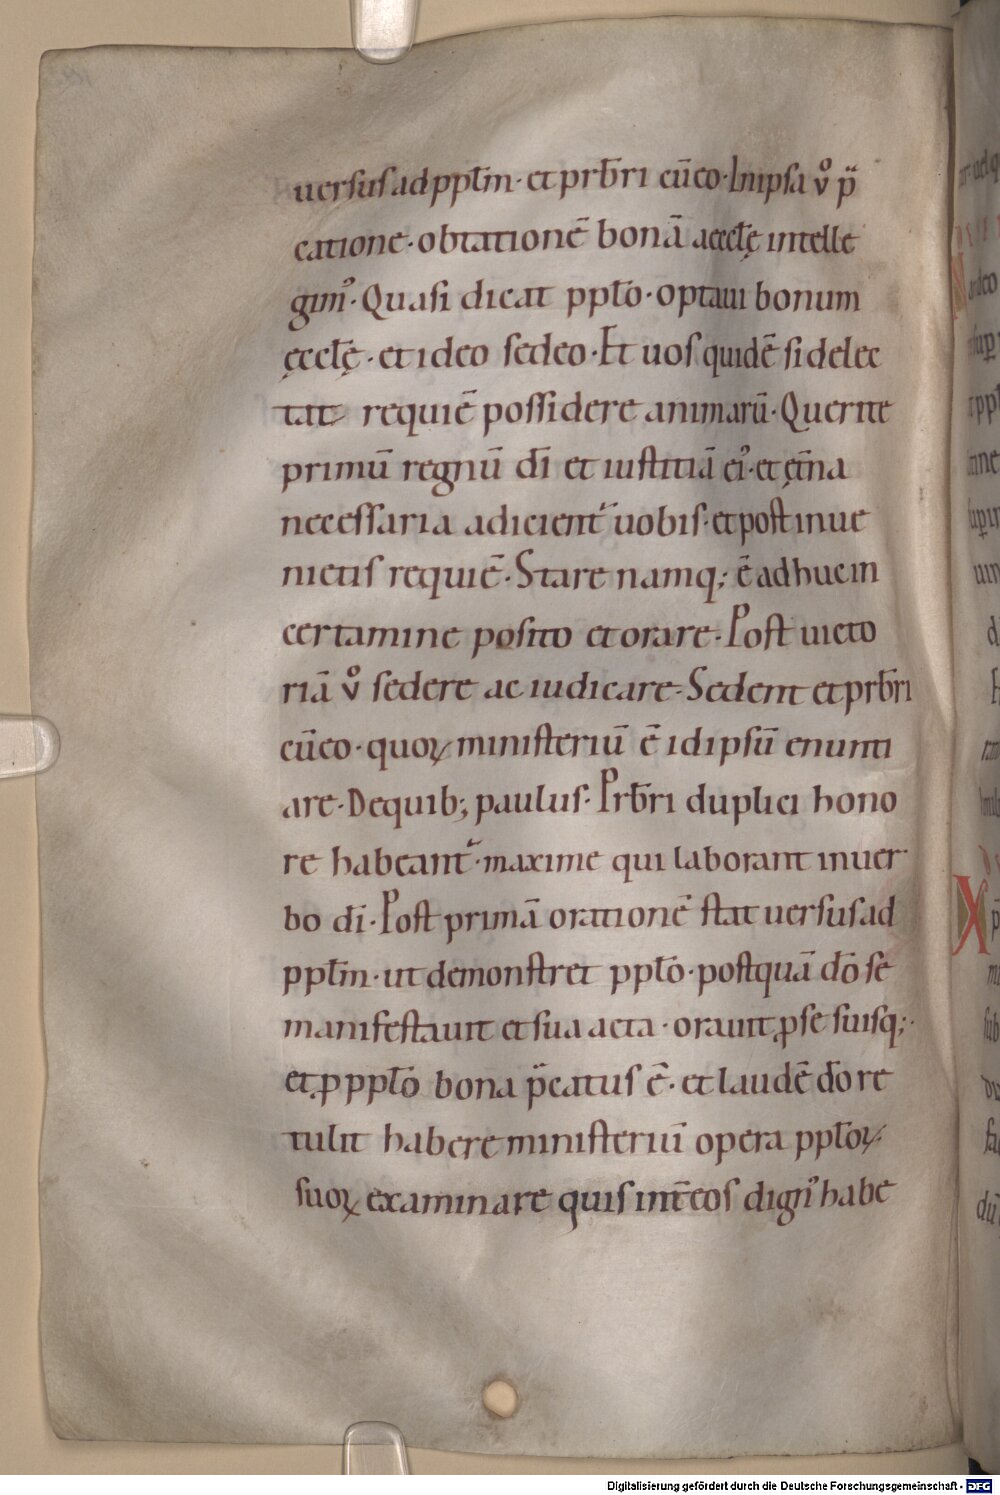 uersus ad ppl̅m· et prb̅ri cū eo· In ipsa v̊ p̈
catione· obtationē bonā aeccl̅ę intelle
gim᾽· Quasi dicat ppl̅o· optaui bonum
ęccl̅ę· et ideo sedeo· Et uos quidē si delec
tat requiē possidere animarū· Querite
primū regnū dī et iustitiā ei᾽· et cęt̅na
necessaria adicient᷑ uobis· et post inue
nietis requiē· Stare namq; ē adhuc in
certamine posito et orare· Post uicto
riā v̊ sedere ac iudicare· Sedent et prb̅ri
cū eo· quoꝝ ministeriū ē id ipsū enunti
are· De quib; paulus· Prb̅ri duplici hono
re habeant᷑· maxime qui laborant in uer
bo dī· Post primā orationē stat uersus ad
ppl̅m· ut demonstret ppl̅o· postquā dō se
manifestauit et sua acta· orauit ꝓ se suisq;·
et ꝓ ppl̅o bona p̈catus ē· et laudē dō re
tulit habere ministeriū opera ppl̅oꝝ
suoꝝ examinare quis int̅ eos dign᾽ habe
Digitalisierung gefördert durch die Deutsche Forschungsgemeinschaft - DFG